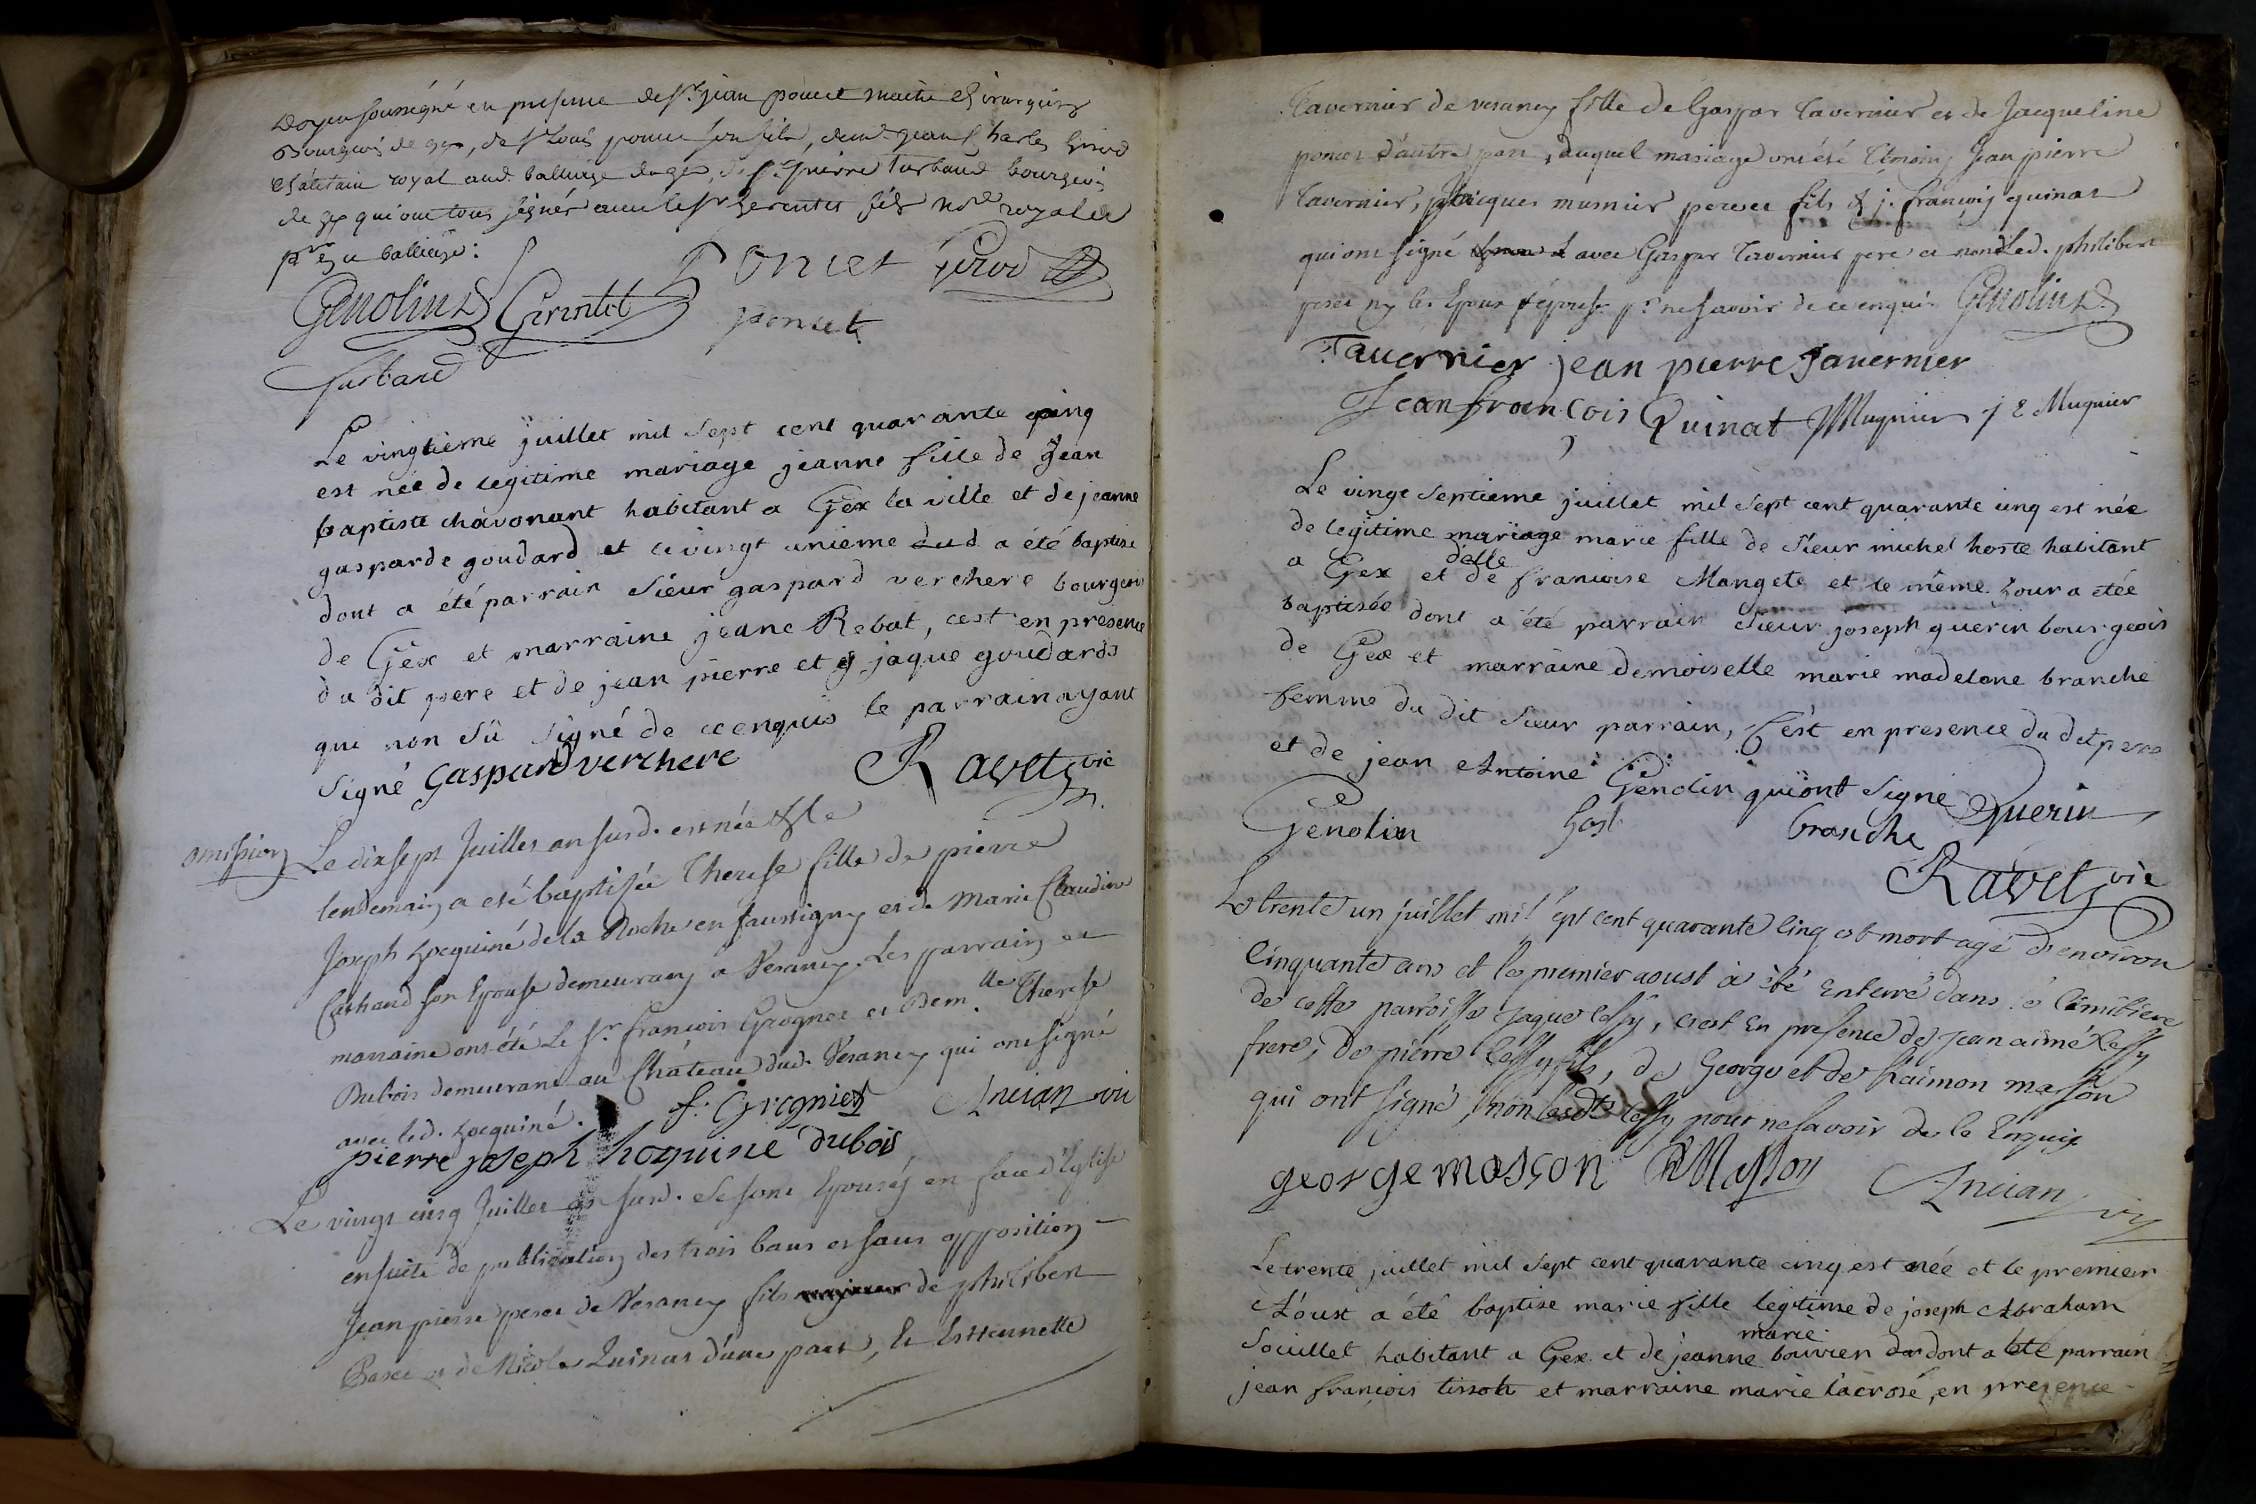 Doyen soussigné en presence de Sr. jean poncet maitre chirurgien
Bourgeois de gex, de Sr Louis poncet son fils, de mr. jean Charles Girod
Chatelain royal aud. balliage de gex, de Sr. pierre Turbaud bourgeois
de gex qui ont tous signés avec le Sr Gerentet fils nore. royal
au balliage :
Genolin D Gerentet Poncet Girod
poncet
Turbaud
Le vingtieme juillet mil sept cent quarante cinq
est née de legitime mariage jeanne fille de Jean
baptiste chavonant habitant a Gex la ville et de jeanne
gasparde goudard et le vingt unieme dud a été baptisé
dont a été parrain Sieur gaspard verchere bourgeois
de Gex et marraine jeane Rebat, cest en presence
du dit pere et de jean pierre et jaque goudards
qui non sü signé de ce enquis le parrain ayant
signé Gaspard verchere Ravet vic
omission Le dix sept Juillet an susd. est née & le
lendemain a eté baptisée Therese fille de pierre
Joseph hocquiné de la Roche en faussigny et de Marie Claudine
Cathand son Epouse demeurans à Vesancy. Les parrain et
marraine ont été Le Sr. françois Grognier et Demlle. Therese
Dubois demeurant au Château dud. Vesancy qui ont signé
avec led. hocquiné. f. Grognier Ancian vic
pierre joseph hoquine Dubois
Le vingt cinq Juillet an susd. se sont Epousés en face d'Eglise
ensuite de publication des trois bans et sans opposition
Jean pierre perce de Vesancy fils majeur de philibert
Perce et de Nicole Quinat d'une part, Et Estiennette
Tavernier de vesancy fille de Gaspar Tavernier et de Jacqueline
poncet d'autre part, duquel mariage ont été témoins Jean pierre
Tavernier, Jacques munier perce fils & j. françois quinat
qui ont signé avec Gaspar Tavernier pere et non led. philibert
perce ny les Epoux & épouse pr. ne savoir de ce enquis Genolin D.
Tauernier jean pierre Tauernier
Jean francois Quinat Mugnier j E Mugnier
Le vingt septieme juillet mil sept cent quarante cinq est née
de legitime mariage marie fille de Sieur michel hoste habitant
a Gex et de delle francoise Mangete et le même jour a etée
baptisée dont a été parrain Sieur joseph guerin bourgeois
de Gex et marraine demoiselle marie madelene branche
femme du dit sieur parrain, C'est en presence du dit pere
et de jean Antoine Genolin qui ont signé
Genolin host branche Guerin
Ravet vic
Le trente un juillet mil sept cent quarante Cinq est mort agé d'environ
Cinquante ans et le premier aoust à été Enterré dans le Cimitiere
de cette parroisse Jaque Cessy, c'est En presence de Jean aimé Cessy
frere, de pierre Cessy fils, de George et de haimon masson
qui ont signé, non lesdts Cessy pour ne savoir de le Enquis
george mosson hMasson Ancian vic
Le trente juillet mil sept cent quarante cinq est née et le premier
Aoust a été baptise marie fille legitime de joseph Abraham
Souillet habitant a Gex et de jeanne marie bouvier dont a été parrain
jean françois tissot et marraine marie lacrose, en presence